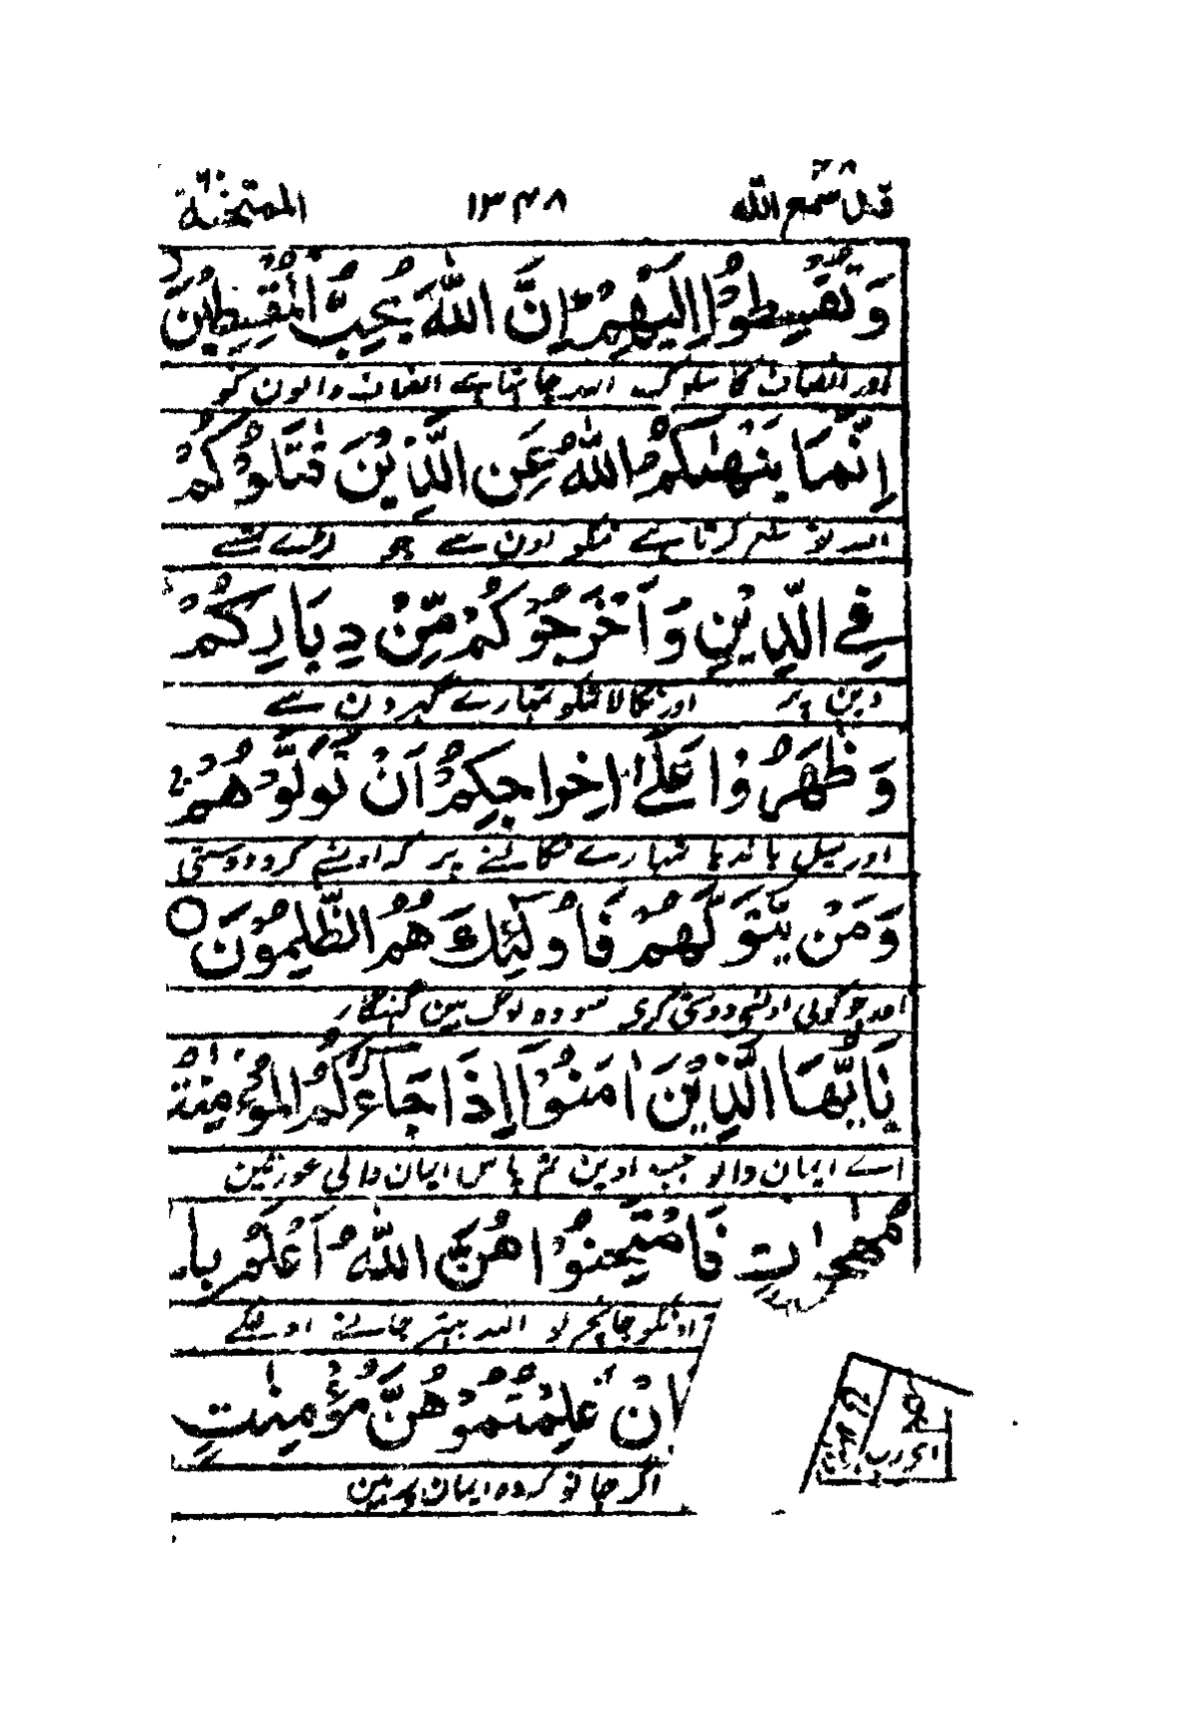 قد سمع الله ٢٨ ١٣٤٨ الممتحنة ٦٠
وَتُقْسِطُوْۤا اِلَيْهِمْ ؕ اِنَّ اللّٰهَ يُحِبُّ الْمُقْسِطِيْنَ
اور انصاف کا سلوک اللہ چاہتا ہے انصاف والون کو
اِنَّمَا يَنْهٰىكُمُ اللّٰهُ عَنِ الَّذِيْنَ قٰتَلُوْكُمْ
اللہ تو منع کرتا ہے تمکو اون سے جو لڑے تمسے
فِي الدِّيْنِ وَاَخْرَجُوْكُمْ مِّنْ دِيَارِكُمْ
دین پر اور نکالا تمکو تمہارے گہرون سے
وَظٰهَرُوْا عَلٰۤى اِخْرَاجِكُمْ اَنْ تَوَلَّوْهُمْ ۚ
اور میل باندہا تمہارے نکالنے پر کہ اونسے کرو دوستی
وَمَنْ يَّتَوَلَّهُمْ فَاُولٰٓئِكَ هُمُ الظّٰلِمُوْنَ ○
اور جو کوئی اونسے دوستی کری سو وہ لوگ ہین گنہگار
يٰۤاَيُّهَا الَّذِيْنَ اٰمَنُوْۤا اِذَا جَآءَكُمُ الْمُؤْمِنٰتُ
اے ایمان والو جب آوین تم پاس ایمان والی عورتین
مُهٰجِرٰتٍ فَامْتَحِنُوْهُنَّ ؕ اَللّٰهُ اَعْلَمُ بِاِ
اونکو جانچ لو اللہ بہتر جانے اونکے
اِنْ عَلِمْتُمُوْهُنَّ مُؤْمِنٰتٍ
اگر جانو کہ وہ ایمان پر ہین